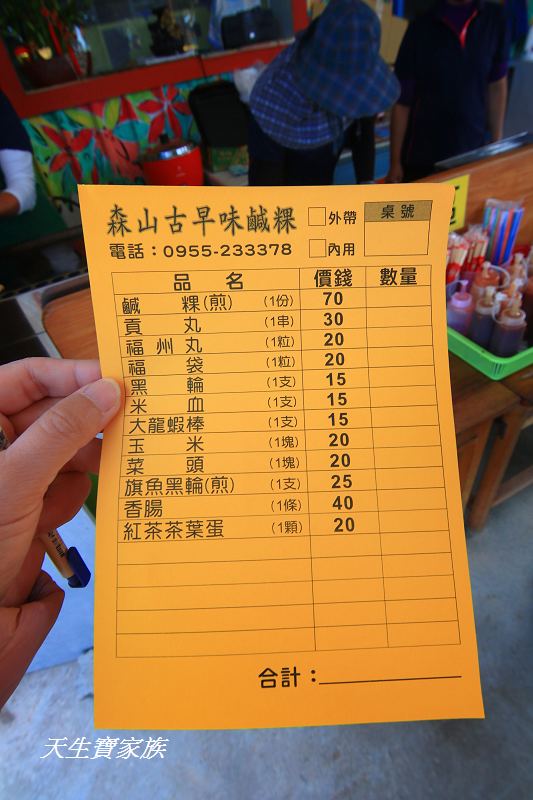 森山古早味鹹粿 □外帶 桌號
電話：0955-233378 □內用
品 名 價錢 數量
鹹 粿(煎) (1份) 70
貢 丸 (1串) 30
福州丸 (1粒) 20
福 袋 (1粒) 20
黑 輪 (1支) 15
米 血 (1支) 15
大龍蝦棒 (1支) 15
玉 米 (1塊) 20
菜 頭 (1塊) 20
旗魚黑輪(煎) (1支) 25
香腸 (1條) 40
紅茶茶葉蛋 (1顆) 20
合計：
天生寶家族